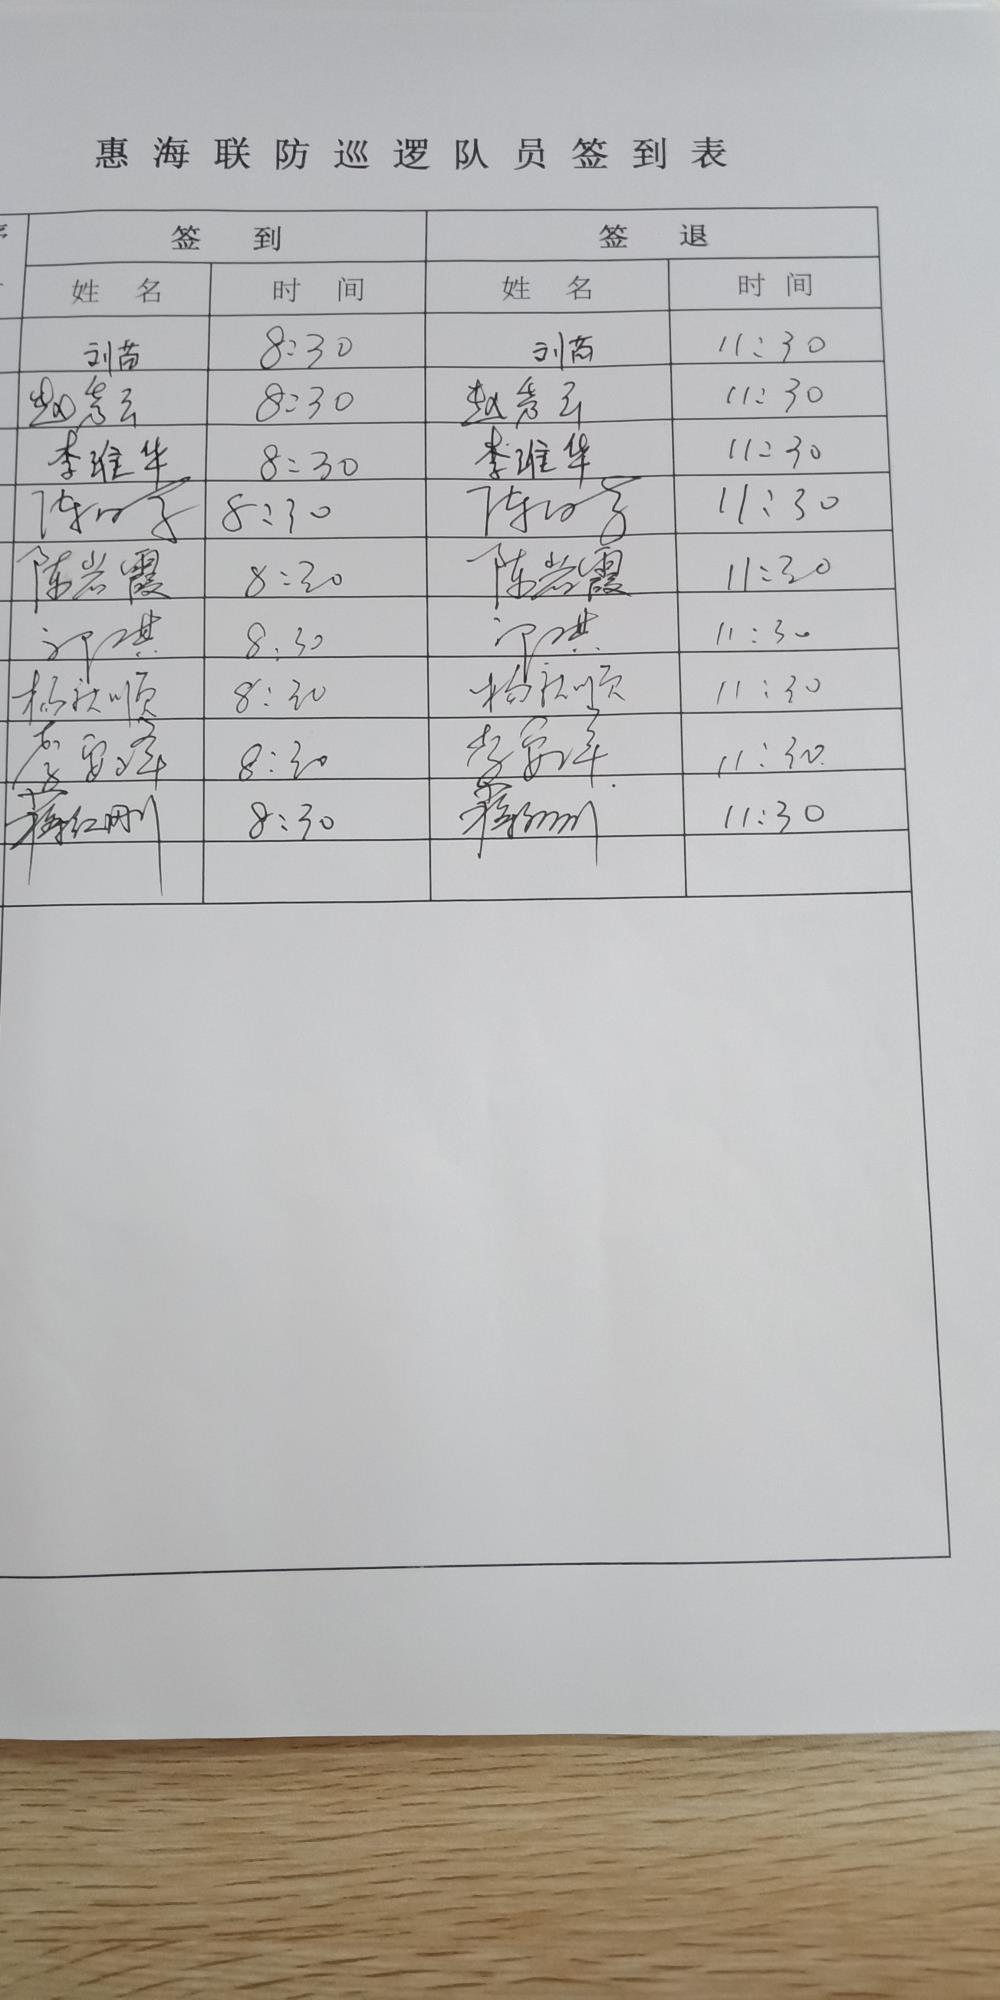 惠海联防巡逻队员签到表
签到 签退
姓名 时间 姓名 时间
刘苗 8:30 刘苗 11:30
赵秀云 8:30 赵秀云 11:30
李维华 8:30 李维华 11:30
陈 8:30 陈 11:30
陈岩霞 8:30 陈岩霞 11:30
邓琪 8:30 邓琪 11:30
杨秋顺 8:30 杨秋顺 11:30
李 8:30 李 11:30
蒋红刚 8:30 蒋红刚 11:30